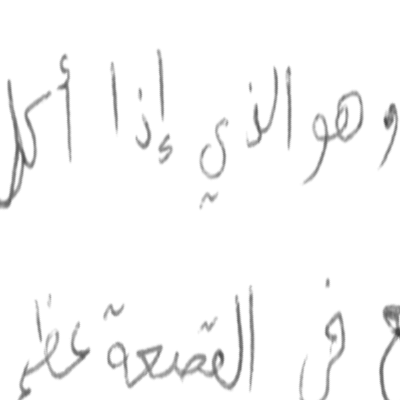 وهو الذي إذا أكل
في القصعة عظ